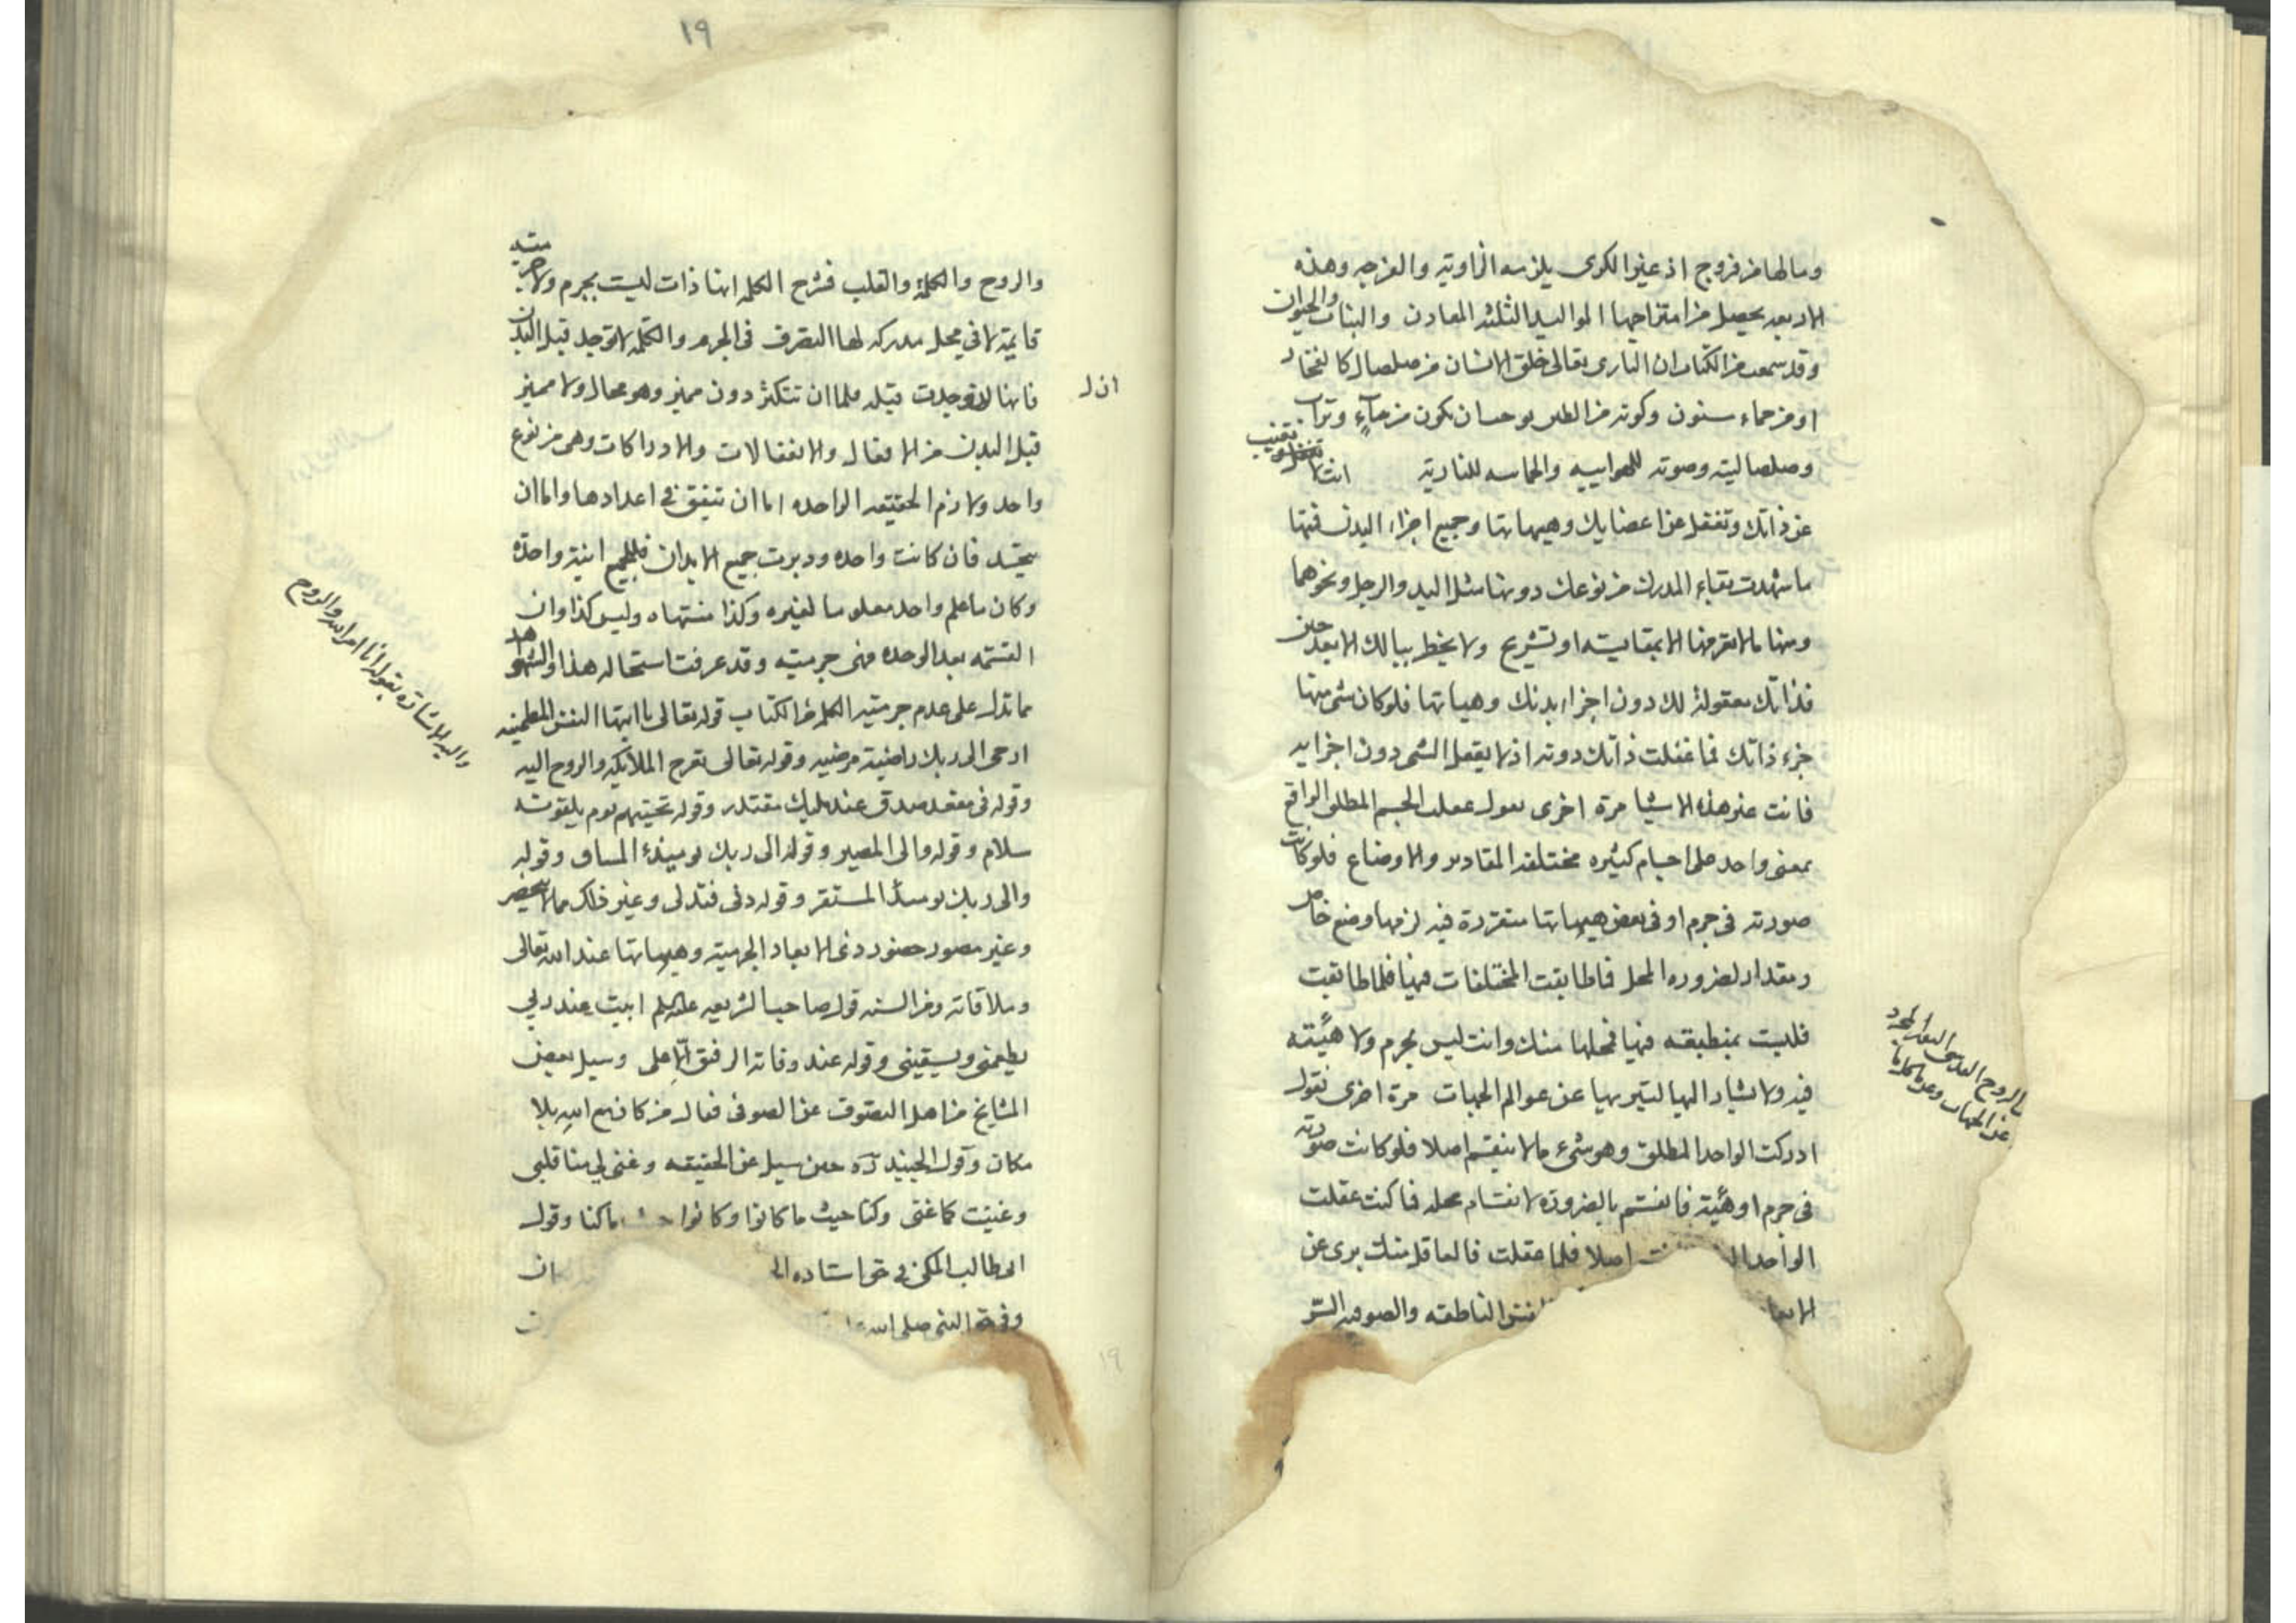 وما لها من فروج اذ غير الكرى يلزمه الزاويه والفرجه وهذه
الاربعه يحصل من امتزاجها المواليد الثلثه المعادن والنبات والحيوان
وقد سمعت من الكتاب ان البارى تعالى خلق الانسان من صلصال كالفخار
او من حماء مسنون وكونه من الطين يوجب ان يكون من ماءٍ وتراب
وصلصاليته وصوته للهوائيه والحماسه للنارية انت لا تغيب
عن ذاتك وتغفل عن اعضايك وهيهاتها وجميع اجزاء البدن فمنها
ما شهدت بقاء المدرك من نوعك دونها مثل اليد والرجل ونحوهما
ومنها ما لا تعرفها الا بمقايسته او تشريح ولا يخطر ببالك الا بعد حين
فذاتك معقولة لك دون اجزاء بدنك وهياتها فلو كان شى منها
جزء ذاتك فما عقلت ذاتك دونه اذ لا يعقل الشى دون اجزايه
فانت غير هذه الاشيا مرة اخرى نقول عقلت الجسم المطلق الواقع
بمعنى واحد على اجسام كثيره مختلفه المقادير والاوضاع فلو كانت
صورته فى جرم او فى بعض هيهاتها متقررة فيه لزمها وضع خاص
ومقدار لضروره المحل فما طابقت المختلفات فهنا فلما طابقت
فليست بمنطبقه فيها فمحلها منك وانت ليس بجرم ولا هيئته
فيه ولا تشار اليها لتبريها عن عوالم الجهات مرة اخرى نقول
ادركت الواحد المطلق وهو شىء ما لا ينقسم اصلا فلو كانت صورته
فى جرم او هيئة فانقسم بالضرورة لانقسام محله فما كنت عقلت
الواحد اصلا فلما عقلت فالعاقل منك برى عن
الابعاد النفس الناطقه والصوفيه السر
بالروح القدسى
عن الجهات
١٩
والروح والكلمة والقلب فشرح الكلمه انها ذات ليست بجرم ولا جرميته
قايمة لا فى محل مدركه لها التصرف فى الجرم والكلمه لا توجد قبل البدن
فانها لو وجدت قبله فلما ان تتكثر دون مميز وهو محال ولا مميز
ان ل
قبل البدن من الافعال والانفعالات والادراكات وهى من نوع
واحد ولازم الحقيقه الواحده اما ان تتفق فى اعدادها واما ان
يتحد فان كانت واحده ودبرت جميع الابدان فللجميع انية واحدة
وكان ما علم واحد معلوما لغيره وكذا مشتهاه وليس كذا وان
القسمه بعد الوحده فهى جرميته وقد عرفت استحاله هذا والشواهد
مما تدل على عدم جرميه الكلمه من الكتاب قوله تعالى يا ايتها النفس المطمينه
ارجعى الى ربك راضية مرضيه وقوله تعالى تعرج الملايكه والروح اليه
وقوله فى مقعد صدق عند مليك مقتدر وقوله تحيتهم يوم يلقونه
سلام وقوله والى المصير وقوله الى ربك يوميذ المساق وقوله
والى ربك يوميذ المستقر وقوله دنى فتدلى وغير ذلك مما لا يحصر
وغير متصور حضور ذى الابعاد الجرمية وهيهاتها عند الله تعالى
وملاقاته ومن السنه قول صاحب الشريعه عليه السلم ابيت عند ربى
يطعمنى ويسقينى وقوله عند وفاته الرفيق الاعلى وسيل بعض
المشايخ من اهل التصوف عن الصوفى فقال من كان مع الله بلا
مكان وقول الجنيد ره حين سيل عن الحقيقه وغنى لى منا قلبى
وغنيت كما غنى وكنا حيث ما كانوا وكانوا حيث ما كنا وقول
ابى طالب المكى فى حق استاده ان
وفى حق النبى صلى الله عليه
واليه الاشارة بقوله انا امر الله والروح
١٩